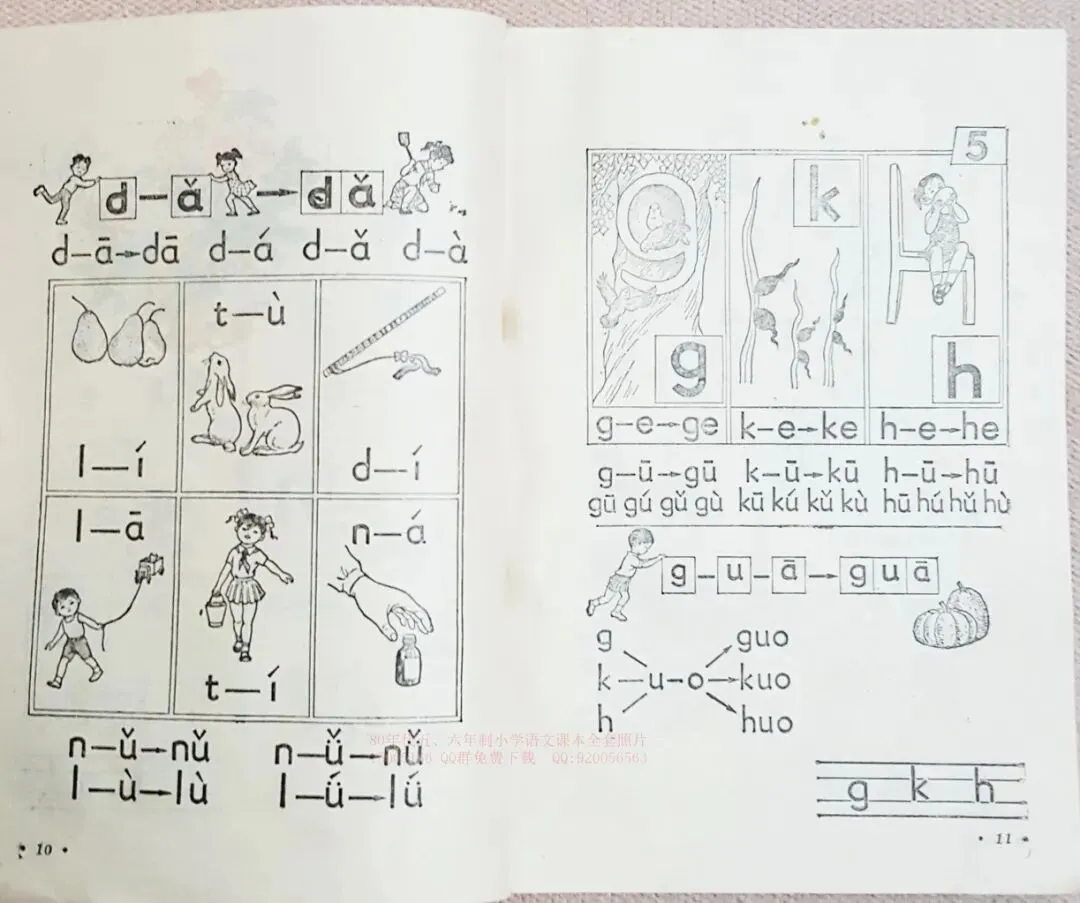 d—ǎ→dǎ
d—ā→dā d—á d—ǎ d—à
t—ù
l—í
d—í
l—ā
n—á
t—í
n—ǔ→nǔ n—ǚ→nǚ
l—ù→lù l—ǘ→lǘ
·10·
5
k
g
h
g—e→ge k—e→ke h—e→he
g—ū→gū k—ū→kū h—ū→hū
gū gú gǔ gù kū kú kǔ kù hū hú hǔ hù
g—u—ā→guā
g guo
k—u—o→kuo
h huo
80年代五、六年制小学语文课本全套照片
QQ群免费下载 QQ:920056563
g k h
·11·